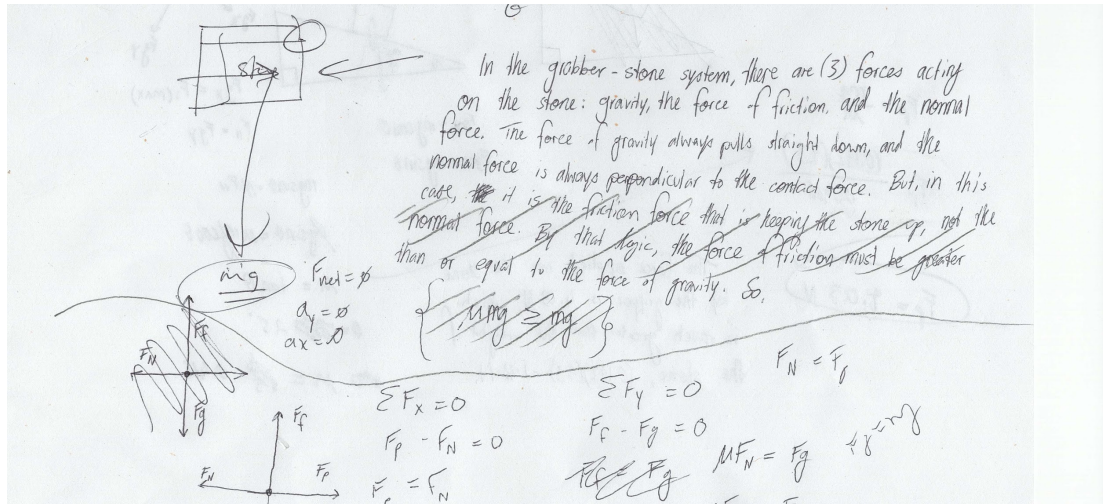 In the grabber-stone system, there are (3) forces acting
on the stone: gravity, the force of friction, and the normal
force. The force of gravity always pulls straight down, and the
normal force is always perpendicular to the contact force. But, in this
case, it is the friction force that is keeping the stone up, not the
normal force. By that logic, the force of friction must be greater
than or equal to the force of gravity. So,
{ μmg ≥ mg }
mg
Fnet = 0
ay = 0
ax = 0
Ff
FN
Fg
ΣFx = 0
FP - FN = 0
ΣFy = 0
Ff - Fg = 0
Ff = Fg
μFN = Fg
Ff
FN
FP